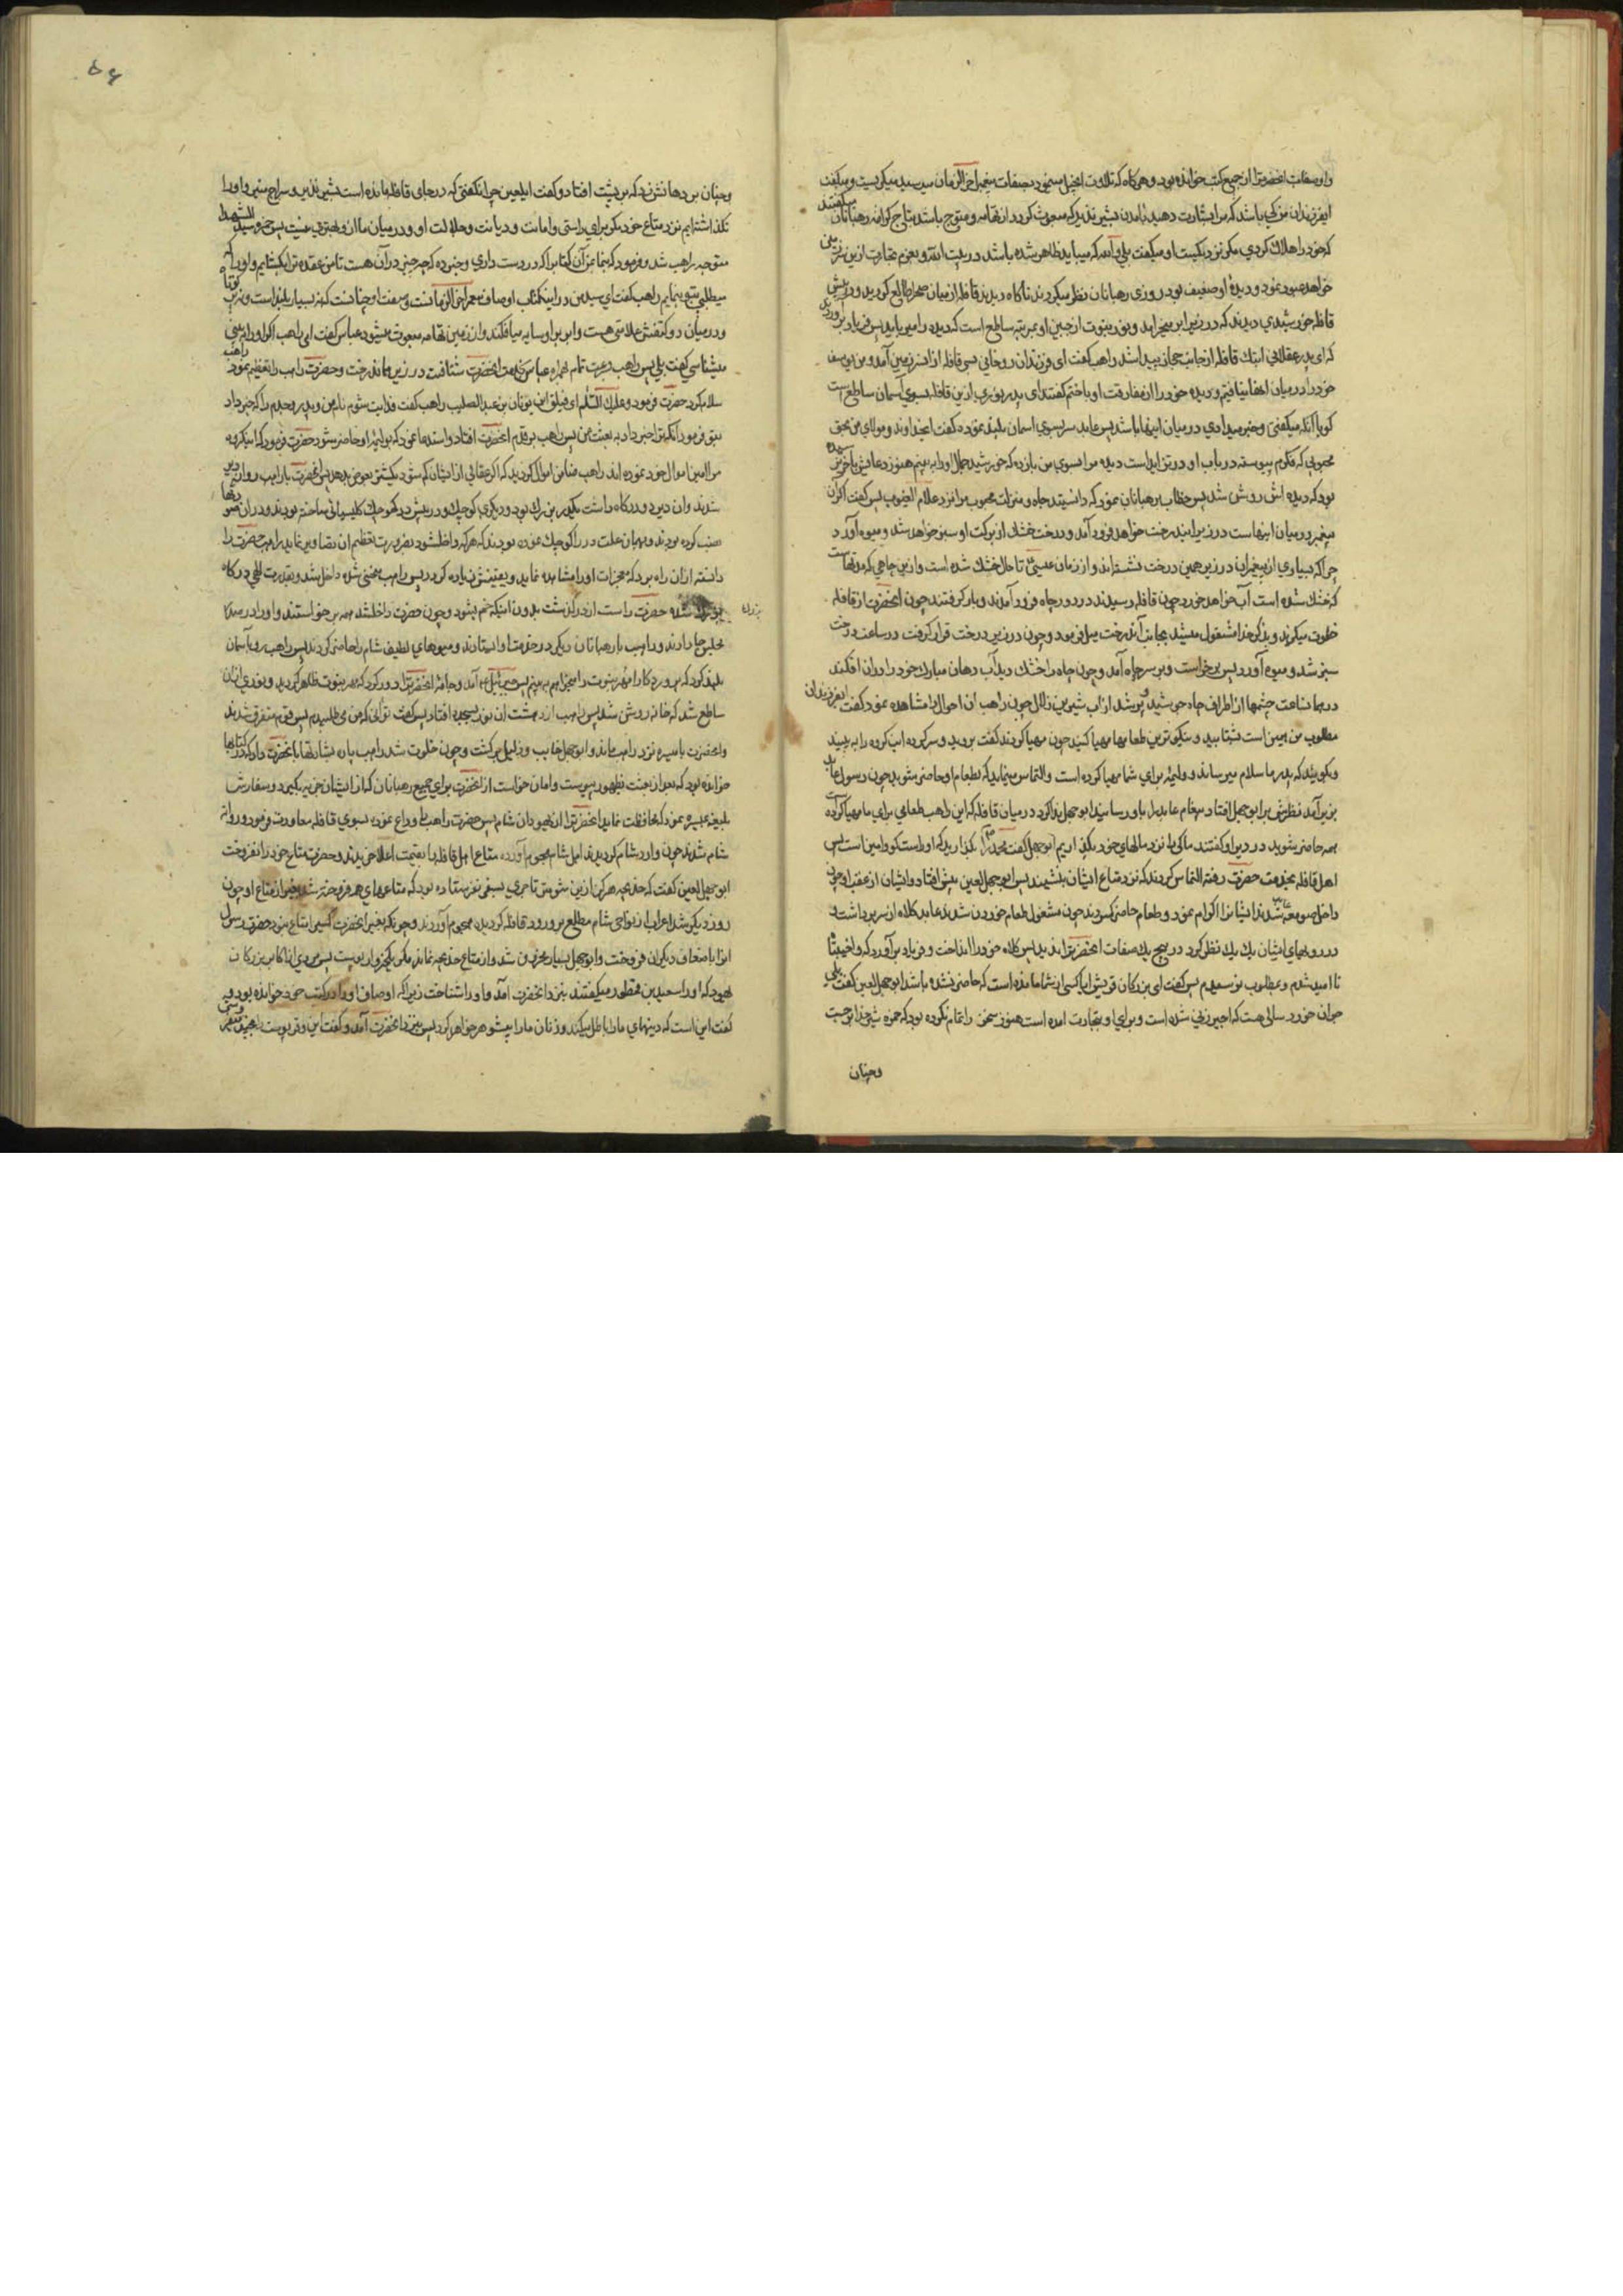 و اوصاف آنحضرترا از جمیع کتب خوانده بود و هرگاه که تلاوت انجیل مینمود بصفات پیغمبر اخر الزمان میرسید میکریست و میکفت
ایفرزندان من کی باشد که مرا بشارت دهید بامدن بشیر نذیر که مبعوث کردد از تهامه و متوج باشد بتاج کرامه رهبانان میکفتند
که خود را هلاک کردی مکر نزدیکست او میکفت بلی والله که میباید ظاهر شده باشد در بیت الله و بعزم تجارت ازین سرزمین
خواهد عبور نمود و دیدهٔ او ضعیف بود روزی رهبانان نظر میکردند ناکاه دیدند قافله از میان صحرا طالع کردید و در پیش
قافله خورشیدی دیدند که در زیر ابر میخرامد و نور نبوت از جبین او بمرتبه ساطع است که دیده را میرباید پس فریاد براوردند
که ای پدر عقلانی اینک قافله از جانب حجاز پیدا شد راهب کفت ای فرزندان روحانی بسی قافله از این سرزمین آمد و من یوسف
خود را در میان انها نیافتم و دیده خود را از مفارقت او باختم کفتند ای پدر نوری ازین قافله بسوی آسمان ساطع است
کفت ای خداوند و مولای من بحق
محبوبی که فکرم پیوسته در باب او در تزاید است دیده مرا بسوی من بازده که خورشید جمال او را به بینم هنوز دعایش باخر نرسیده
بود که دیده اش روشن شد پس خطاب برهبانان نمود که دانستید جاه و منزلت محبوب مرا نزد علام الغیوب پس کفت اکر آن
پیغمبر در میان اینهاست در زیر این درخت خواهد فرود آمد و درخت خشک از برکت او سبز خواهد شد و میوه آورد
چرا که بسیاری از پیغمبران در زیر همین درخت نشسته اند و از زمان عیسی تا حال خشک شده است و ازین چاهی که مدتهاست
که خشک شده است آب خواهد خورد چون قافله رسیدند در دور چاه فرود آمدند و بار کرفتند چون آنحضرت از قافله
خلوت میکزید و بذکر خدا مشغول میشد بجانب آندرخت میل فرمود و چون در زیر درخت قرار کرفت در ساعت درخت
سبز شد و میوه آورد پس برخواست و بر سر چاه آمد و چون چاه را خشک دید آب دهان مبارک خود را در ان افکند
در همانساعت چشمها از اطراف چاه جوشید و پر شد از اب شیرین زلال چون راهب ان احوال را مشاهده نمود کفت ایفرزندان
مطلوب من همین است بشتابید و نیکوترین طعامها مهیا کنید چون مهیا کردند کفت بروید و سرکرده این کروه را به بینید
و بکوئید که پدر ما سلام میرساند و ولیمهٔ برای شما مهیا کرده است و التماس مینماید که بطعام او حاضر شوید چون رسول عابد
بزیر آمد نظرش بر ابوجهل افتاد پیغام عابد را باو رسانید ابوجهل ندا کرد در میان قافله که این راهب طعامی برای ما مهیا کرده است
همه حاضر شوید در دیر او کفتند ما کی را نزد مالهای خود بکذاریم ابوجهل کفت محمد را بکذارید که او راست کو و امین است پس
اهل قافله بخدمت حضرت رفته التماس کردند که نزد متاع ایشان بنشیند پس ابوجهل لعین پیش افتاد و ایشان از عقب او چون
داخل صومعه شدند ایشانرا اکرام نمود و طعام حاضر کردند چون مشغول طعام خوردن شدند عابد کلاه از سر برداشت و
در رویهای ایشان یک یک نظر کرد در هیچ یک صفات آنحضرترا ندید پس کلاه خود را انداخت و فریاد برآورد که واخیبتا
نا امید شدم و بمطلوب نرسیدم پس کفت ای بزرکان قریش ایا کسی از شما مانده است که حاضر نشده باشد ابوجهل لعین کفت بلی
جوان خورد سالی هست که اجیر زنی شده است و برای او بتجارت امده است هنوز سخن را تمام نکرده بود که حمزه شیر خدا برجست
وچنان
٥٤
وچنان بر دهانش زد که بر پشت افتاد و کفت ایلعین چرا نکفتی که در جای قافله مانده است بشیر نذیر و سراج منیر و اورا
نکذاشته ایم نزد متاع خود مکر برای راستی و امانت و دیانت و جلالت او و در میان ما از و بهتری نیست پس حمزه سید الشهدا
متوجه راهب شد و فرمود که بنما بمن آن کتاب را که در دست داری و خبر ده که چه چیز در آن هست تا من عقده ترا بکشایم و اورا که
میطلبی بتو بنمایم راهب کفت ای سید من در این کتاب اوصاف پیغمبر اخر الزمانست و صفت او چنانست که نه بسیار بلند است و نه کوتاه
و در میان دو کتفش علامتی هست و ابر بر او سایه میافکند و از زمین تهامه مبعوث میشود عباس کفت ای راهب اکر او را به بینی
میشناسی کفت بلی پس راهب بسرعت تمام همراه عباس بخدمت آنحضرت شتافت در زیر آن درخت و حضرت راهب را تعظیم نمود راهب
سلام کرد حضرت فرمود و علیک السلام ای فیلق ابن یونان بن عبدالصلیب راهب کفت فدایت شوم نام من و پدر و جدم را که خبر داد
بتو فرمود آنکه ترا خبر داد به بعثت من پس راهب بر قدم آنحضرت افتاد و استدعا نمود که بولیمهٔ او حاضر شود حضرت فرمود که اینکروه
مرا امین اموال خود نموده اند راهب ضامن اموال کردید که اکر عقالی از ایشان کم شود بکشتری عوض بدهد پس آنحضرت با راهب روانه دیر
شدند و ان دیر دو درکاه داشت یکی بزرک بود و دیکری کوچک و در پیش در کوچک کلیسیائی ساخته بودند و در آن صورتها
نصب کرده بودند و بهمان علت در را کوچک نموده بودند که هر که داخل شود بضرورت تعظیم ان تصاویر نماید راهب حضرت را
دانسته از ان راه برد که معجزات او را مشاهده نماید و یقینش زیاده کردد پس راهب منحنی شده داخل شد و بقدرت الهی درکاه
بزرک شده حضرت راست از در کذشت بدون اینکه خم بشود و چون حضرت داخلشد همه برخواستند و او را در صدر
مجلس جا دادند و راهب با رهبانان دیکر در خدمت او ایستادند و میوهای لطیف شام را حاضر کردند پس راهب رو بآسمان
بلند کرد که پروردکارا مهر نبوت را میخواهم به بینم پس جبرئیل آمد و جامهٔ آنحضرترا دور کرد که مهر نبوت ظاهر کردید و نوری از ان
ساطع شد که خانه روشن شد پس راهب از دهشت ان نور بسجده افتاد پس کفت تو آنی که من می طلبیدم پس قوم متفرق شدند
و آنحضرت با میسره نزد راهب ماند و ابوجهل خایب و ذلیل برکشت و چون خلوت شد راهب
خوانده بود که بعد از بعثت بظهور پیوست و امان خواست از آنحضرت برای جمیع رهبانان که از ایشان جزیه نکیرد و سفارش
بلیغ بمیسره نمود که محافظت نماید آنحضرترا از یهودان شام پس حضرت راهب را وداع نموده بسوی قافله معاودت فرمود و روانه
شام شدند چون وارد شام کردیدند اهل شام هجوم آورده متاعها اهل قافله را بقیمت اعلا خریدند و حضرت متاع خود را نفروخت
ابوجهل لعین کفت که خدیجه هرکز ازین شومتر تاجری بسفر نفرستاده بود که متاعهای همه فروخته شد بغیر از متاع او چون
روز دیکر شد اعراب از نواحی شام مطلع بر ورود قافله کردیده هجوم آوردند و چونکه بغیر آنحضرت کسی را متاع نبود حضرت رسول
انرا باضعاف دیکران فروخت و ابوجهل بسیار محزون شد و از متاع خدیجه نماند مکر یکخروار پوست پس مردی از اکابر بزرکان
یهود که او را سعید بن قطمور میکفتند بنزد آنحضرت آمد و او را شناخت زیرا که اوصاف او را در کتب خود خوانده بود پس
کفت این است که دینهای ما را باطل میکند و زنان ما را بیشوهر خواهد کرد پس بنزد آنحضرت آمد و کفت این پوست